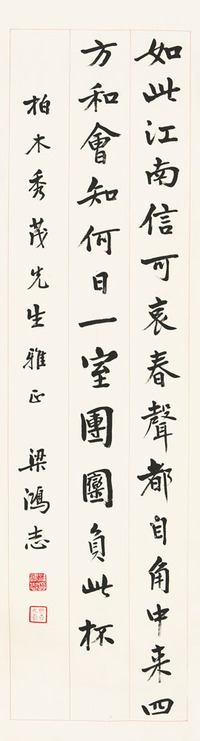 如此江南信可哀春聲都自角中来四
方和會知何日一室團圞負此杯
柏木秀茂先生雅正 梁鴻志